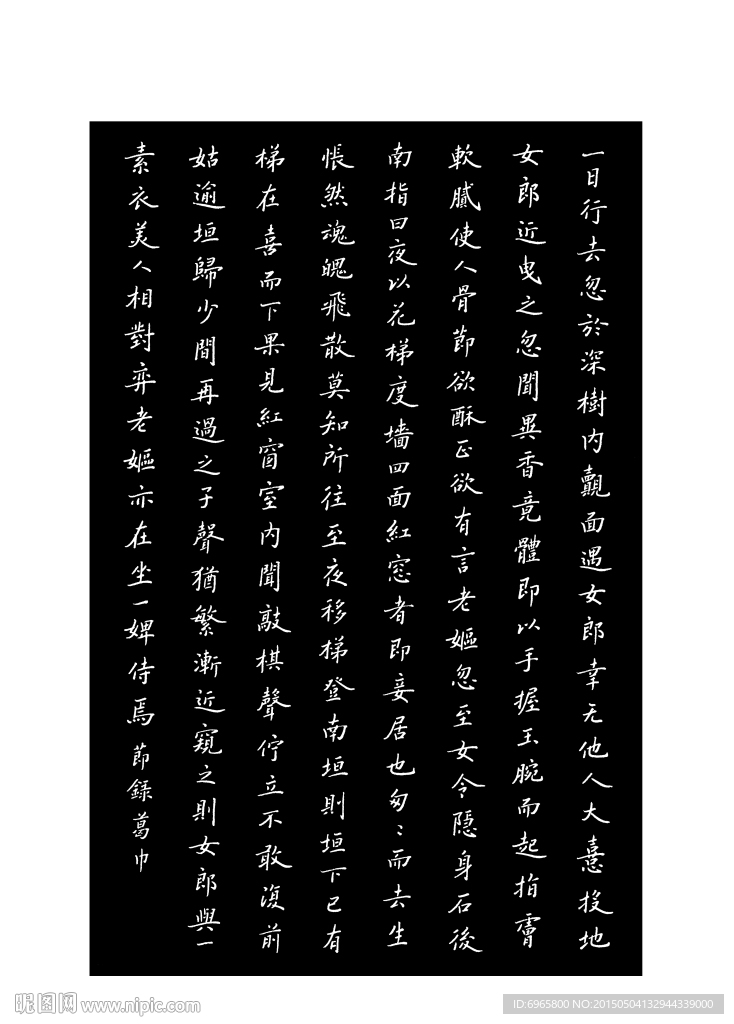 一日行去忽於深樹内覿面遇女郎幸无他人大憙投地
女郎近曳之忽聞異香竟體即以手握玉腕而起指膚
軟膩使人骨節欲酥正欲有言老嫗忽至女令隱身石後
南指曰夜以花梯度墻四面紅窓者即妾居也匆匆而去生
悵然魂魄飛散莫知所往至夜移梯登南垣則垣下已有
梯在喜而下果見紅窗室内聞敲棋聲佇立不敢復前
姑逾垣歸少間再過之子聲猶繁漸近窺之則女郎與一
素衣美人相對弈老嫗亦在坐一婢侍焉節録葛巾
昵图网 www.nipic.com
ID:6965800 NO:20150504132944339000